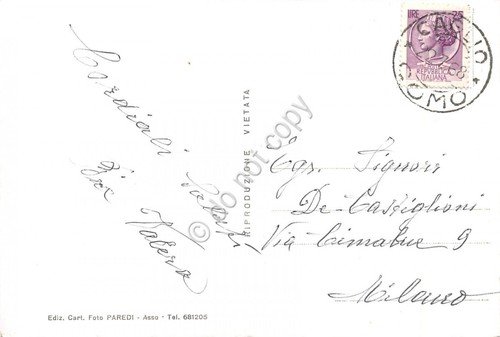 LIRE 25
REPUBBLICA
ITALIANA
CAGLIO
COMO
Cordiali Saluti
RIPRODUZIONE VIETATA
Do not copy
Egr. Signori
De Castiglioni
Via Cimabue 9
Milano
Ediz. Cart. Foto PAREDI - Asso - Tel. 681205